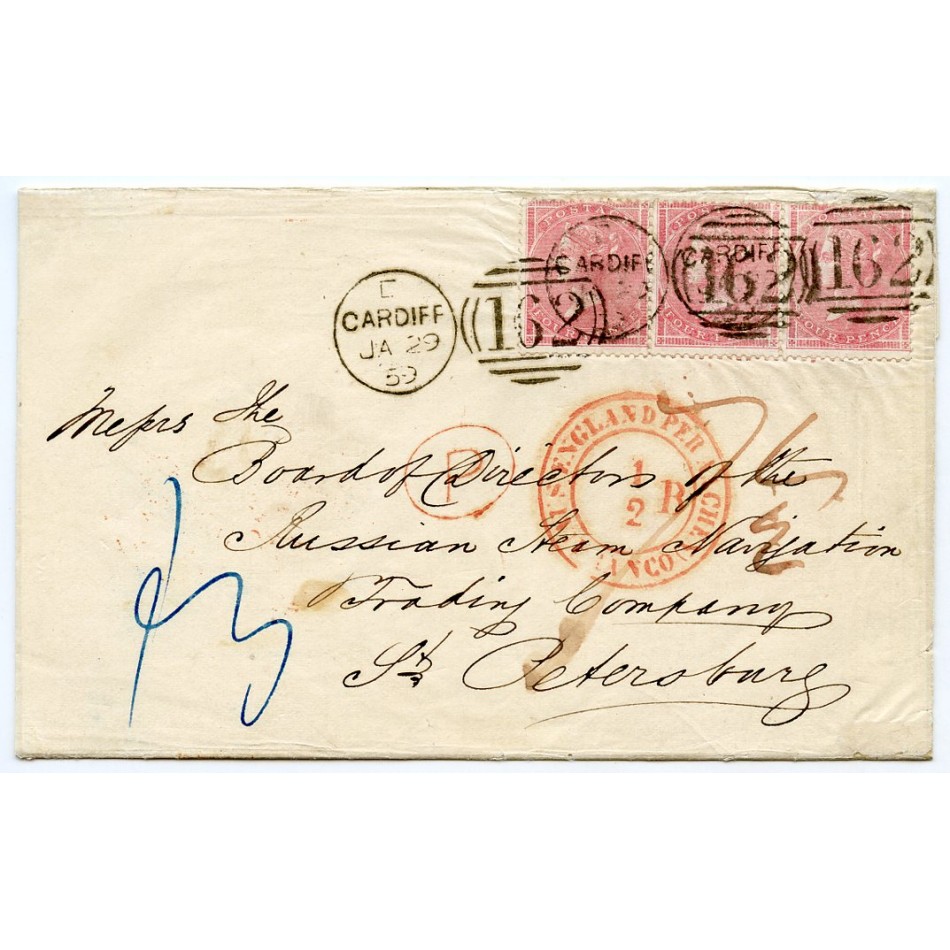 POSTA
POSTA
CARDIFF
CARDIFF
162
162
162
FOUR
FOUR
FOUR PENCE
E
CARDIFF
JA 29
59
Messrs The
Board of Directors of the
Russian Steam Navigation
Trading Company
St Petersburg
P
AUS ENGLAND PER AACHEN
FRANCO
1
2
R